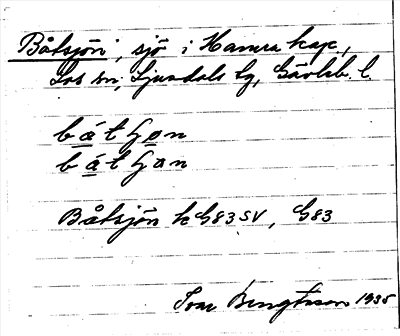 Båtsjön, sjö i Hamra kap.,
Los sn, Ljusdals tg, Gävleb. l.
båtʃøn
båtʃan
Båtsjön k G83 SV, G83
Ivar Bengtsson 1935